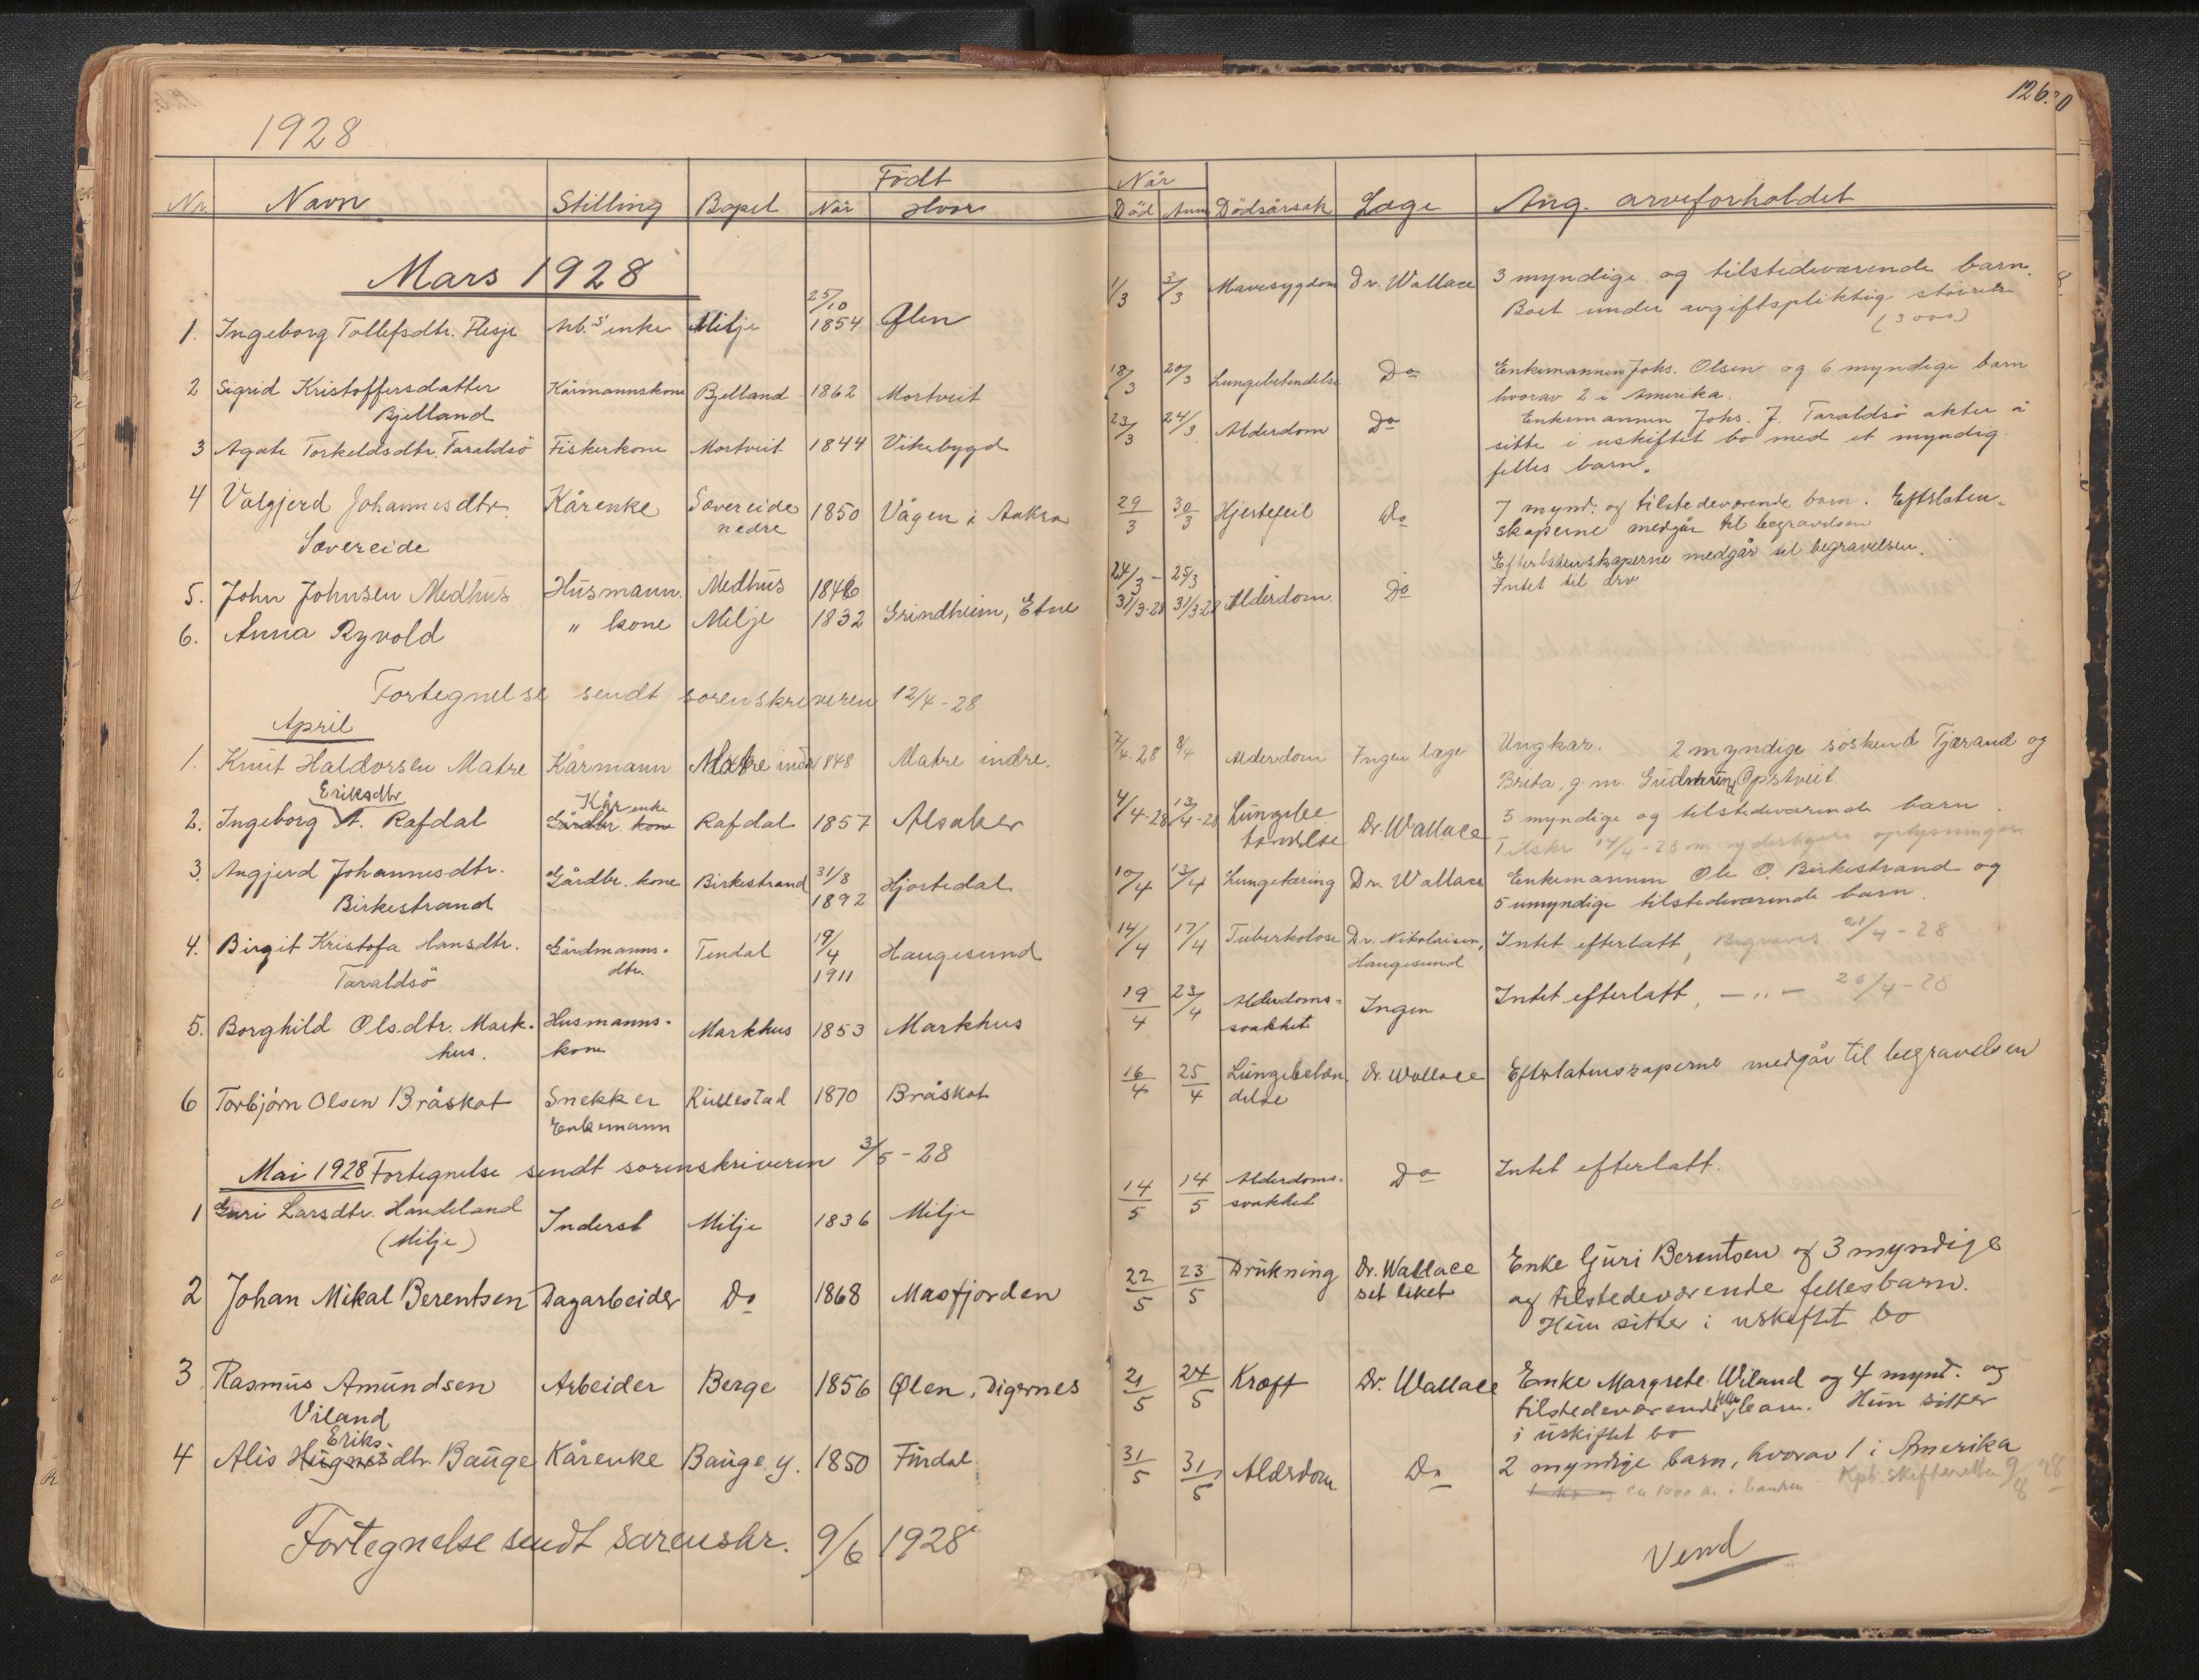 1928
126.
Nr. Navn Stilling Bopel Født Når Hvor
Når Död Anm Dödsårsak Læge Ang. arveforholdet
Mars 1928
1. Ingeborg Tollefsdtr. Flesje enke Milje 25/10 1854 Ølen
1/3 3/3 Mavesygdom Dr. Wallace 3 myndige og tilstedeværende barn.
Boet under avgiftspliktig störrelse
(3000)
2 Sigrid Kristoffersdatter Kårmannskone Bjelland 1862 Mortveit
Bjelland
18/3 20/3 Lungebetendelse Do Enkemannen Johs. Olsen og 6 myndige barn
hvorav 2 i Amerika.
3 Agate Torkeldsdtr. Taraldsö Fiskerkone Mortveit 1844 Vikebygd
23/3 24/3 Alderdom Do Enkemannen Johs. J. Taraldsö akter å
sitte i uskiftet bo med et myndig
felles barn.
4 Valgjerd Johannesdtr. Kårenke Sævereide nedre 1850 Vågen i Aakra
Sævereide
29/3 30/3 Hjertefeil Do 7 mynd. og tilstedeværende barn. Eftrlaten-
skaperne medgår til begravelsen
5. John Johnsen Medhus Husmann. Medhus 1846
24/3 - 25/3 Efterlatenskaperne medgår til begravelsen.
6. Anna Ryvold " kone Milje 1832 Grindheim, Etne
31/3-28 31/3-28 Alderdom. Do Intet til arv
Fortegnelse sendt sorenskriveren 12/4-28
April
1. Knut Haldorsen Matre Kårmann Matre indre 1848 Matre indre.
7/4-28 8/4 Alderdom Ingen læge Ungkar. 2 myndige söskend Tjærand og
Breta, g.m. Opstveit.
2. Ingeborg Eriksdtr A. Rafdal Kårenke Gårdbr. kone Rafdal 1857 Alsaker
4/4-28 13/4-28 Lungebetendelse Dr. Wallace 3 myndige og tilstedeværende barn.
Tilskr 14/4-28 om yderligere oplysninger
3. Angjerd Johannesdtr. Gårdbr. kone Birkestrand 31/8 1892 Hjortedal
Birkestrand
10/4 13/4 Lungetæring Dr. Wallace Enkemannen Ole O. Birkestrand og
5 umyndige tilstedeværende barn.
4. Birgit Kristofa Hansdtr. Gårdmanns-dtr. Tendal 19/4 1911 Haugesund
Taraldsö
14/4 17/4 Tuberkolose Dr. Nikolaisen, Haugesund Intet efterlatt, Begraves 21/4-28
5. Borghild Olsdtr. Mark- Husmanns-kone Markhus 1853 Markhus
hus.
19/4 23/4 Alderdoms-svakhet Ingen Intet efterlatt, — " — 26/4-28
6 Torbjörn Olsen Bråskat Snekker Enkemann Rullestad 1870 Bråskat
16/4 25/4 Lungebeten-delse Dr. Wallace Efterlatenskaperne medgår til begravelsen
Mai 1928 Fortegnelse sendt sorenskriveren 3/5-28
1 Guri Larsdtr. Handeland Inderst Milje 1836 Milje
(Milje)
14/5 14/5 Alderdoms-svakhet Do Intet efterlatt.
2 Johan Mikal Berentsen Dagarbeider Do 1868 Masfjorden
22/5 23/5 Drukning Dr. Wallace set liket Enke Guri Berentsen og 3 myndige
og tilstedeværende fellesbarn.
Hun sitter i uskiftet bo
3 Rasmus Amundsen Arbeider Berge 1856 Ølen, Digernes
Viland
21/5 24/5 Kræft Dr. Wallace Enke Margrete Wiland og 4 mynd. og
tilstedeværende felles barn. Hun sitter
i uskiftet bo
4 Alis Eriks dtr. Bauge Kårenke Bauge y. 1850 Furdal
31/5 31/5 Alderdom Do 2 myndige barn, hvorav 1 i Amerika
ca 1000 kr. i banken Skifteretten 9/8 28
Fortegnelse sendt sorenskr. 9/6 1928
Vend